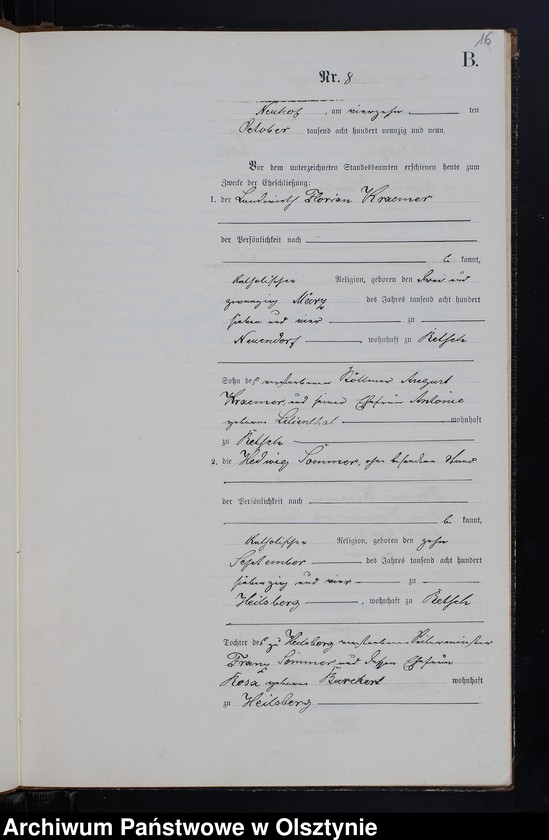 16
B.
Nr. 8
Neuhof, am vierzehn ten
October tausend acht hundert neunzig und neun.
Vor dem unterzeichneten Standesbeamten erschienen heute zum
Zwecke der Eheschließung:
1. der Landwirth Florian Kraemer
der Persönlichkeit nach
be kannt,
katholischer Religion, geboren den drei und
zwanzig März des Jahres tausend acht hundert
sieben und vier zu
Neuendorf, wohnhaft zu Retsch
Sohn des verstorbenen Köllmer August
Kraemer und seiner Ehefrau Antonie
geborne Lilienthal wohnhaft
zu Retsch
2. die Hedwig Sommer, ohne besonderen Stand
der Persönlichkeit nach
be kannt,
katholischer Religion, geboren den zehn
September des Jahres tausend acht hundert
siebenzig und vier zu
Heilsberg, wohnhaft zu Retsch
Tochter des zu Heilsberg verstorbenen
Franz Sommer und dessen Ehefrau
Rosa geborne Barckert wohnhaft
zu Heilsberg
Archiwum Państwowe w Olsztynie